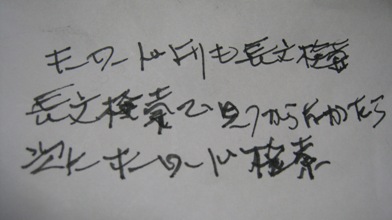 キーワードよりも長文検索
長文検索で見つからなかたら
次にキーワード検索